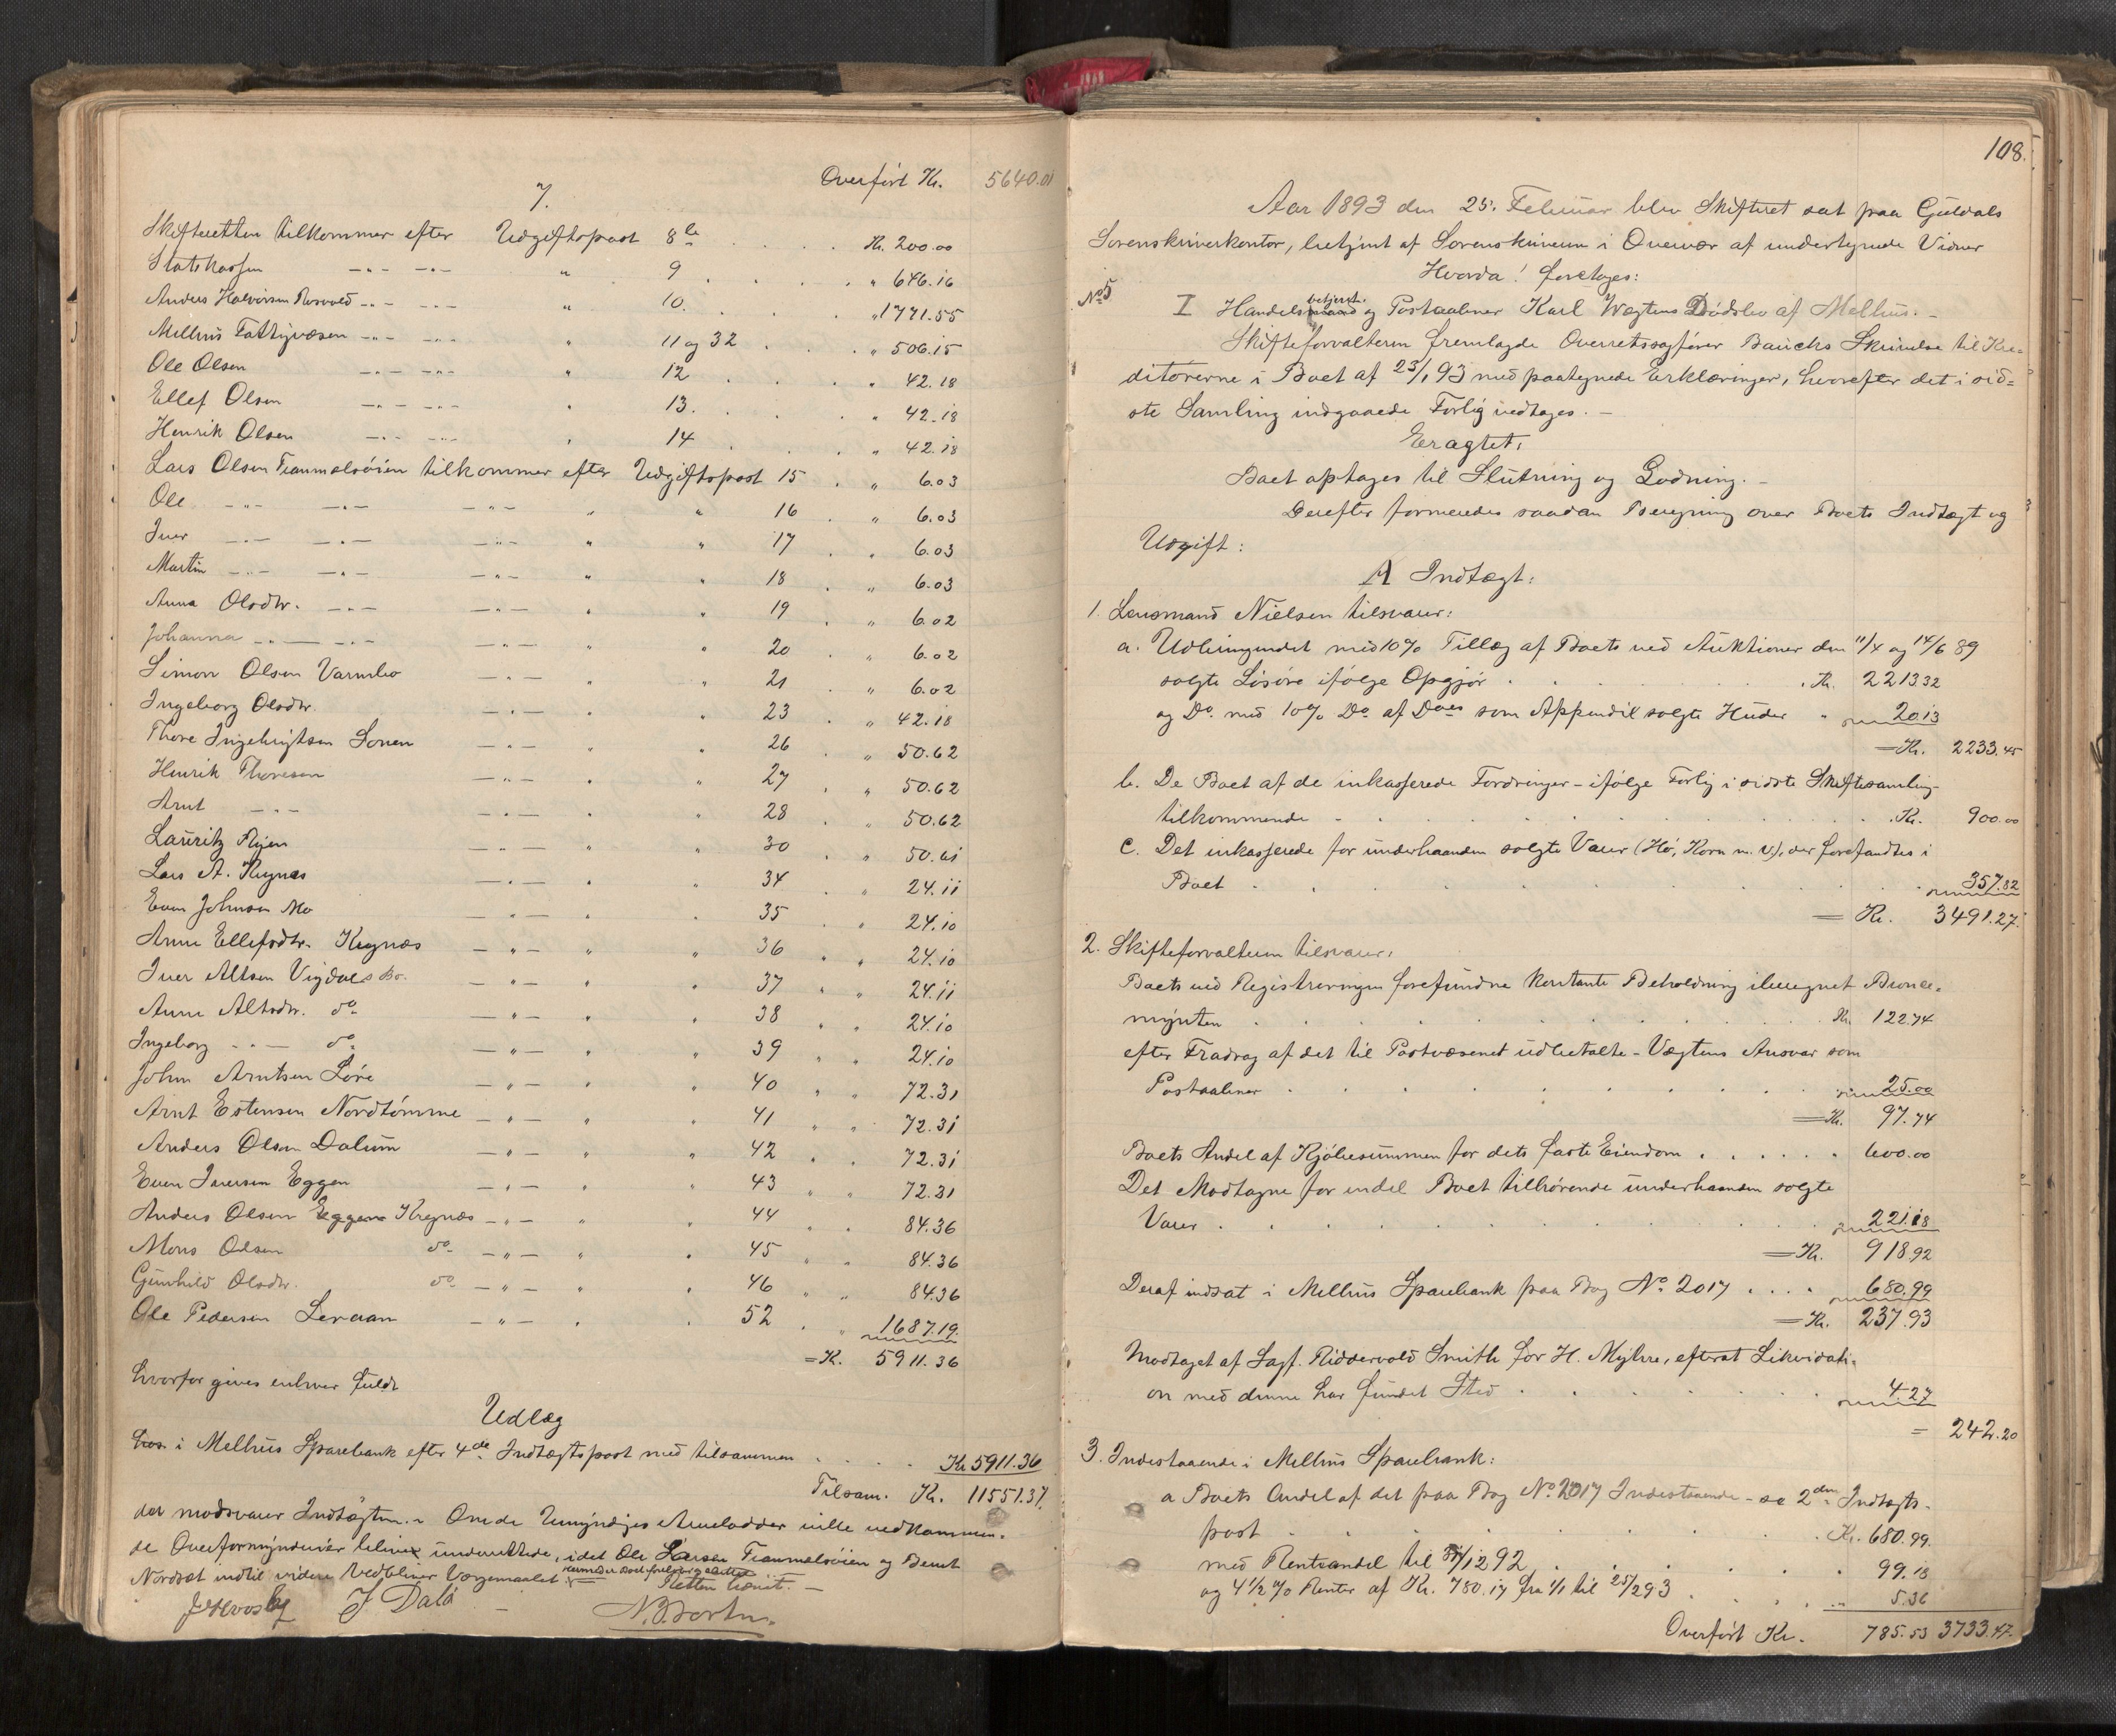 Overført Kr. 5640.01
7.
Skifteretten tilkommer efter Udgiftspost 8de . . . . Kr. 200.00
Statskassen —"— —"— " 9 . . . . " 646.16
Anders Halvorsen Rosvold —"— —"— " 10. . . . " 1771.55
Melhus Fattigvæsen —"— —"— " 11 og 32 . . . " 506.15
Ole Olsen —"— —"— " 12 . . . " 42.18
Ellef Olsen —"— —"— " 13. . . . " 42.18
Henrik Olsen —"— —"— " 14 . . . " 42.18
Lars Olsen Trammelsøien tilkommer efter Udgiftspost 15 . " 6.03
Ole —"— —"— —"— " " 16 . " 6.03
Iver —"— —"— —"— " " 17 . " 6.03
Martin —"— —"— —"— " " 18 . " 6.03
Anna Olsdtr. —"— —"— " " 19 . " 6.02
Johanna —"— —"— —"— " " 20 . " 6.02
Simon Olsen Varmbo —"— " " 21 . " 6.02
Ingeborg Olsdtr. —"— " " 23 . " 42.18
Thore Ingebrigtsen Sonen —"— " " 26 . " 50.62
Henrik Thoresen —"— " " 27 . " 50.62
Arnt —"— —"— " " 28 . " 50.62
Lauritz Myen —"— " " 30 . " 50.61
Lars A. Kregnæs —"— " " 34 . " 24.11
Even Johnsen Mo —"— " " 35 . " 24.10
Anne Ellefsdtr. Kregnæs —"— " " 36 " " 24.10
Iver Altsen Vigdals bo. —"— " " 37 " " 24.11
Anne Altsdtr. do —"— " " 38 " " 24.10
Ingeborg —"— do —"— " " 39 " " 24.10
John Arntsen Løre —"— " " 40 " " 72.31
Arnt Estensen Nordtømme —"— " " 41 " " 72.31
Anders Olsen Dalum —"— " " 42 " " 72.31
Even Iversen Eggen —"— " " 43 " " 72.31
Anders Olsen Eggen Kregnæs —"— " " 44 " " 84.36
Mons Olsen do —"— " " 45 " " 84.36
Gunhild Olsdtr. do —"— " " 46 " " 84.36
Ole Pedersen Leraan —"— " " 52 . " 1687.19.
= K. 5911.36
hvorfor gives enhver fuldt
Udlæg
hos i Melhus Sparebank efter 4de Indtægtspost med tilsammen . . . . Kr 5911.36
Tilsam. Kr. 11551.37.
der modsvarer Indtægten. - Om de Umyndiges Arvelodder ville vedkommen-
de Overformynderier blive underrettede, idet Ole Larsen Trammelsøien og Bernt
Nordsæt indtil videre vedbliver Værgemaalet Retten hævet. —
J Dala

108.
Aar 1893 den 25. Februar blev Skifteret sat paa Guldals
Sorenskriverkontor, betjent af Sorenskriveren i Overvær af undertegnede Vidner
Hvorda! foretoges:
No 5 I Handelsmand betjent. og Postaabner Karl Vægtens Dødsbo af Melhus. —
Skifteforvalteren fremlagde Overretssagfører Bauchs Skrivelse til Kre-
ditorerne i Boet af 23/1 93 med paategnede Erklæringer, hvorefter det i sid-
ste Samling indgaaede Forlig vedtages. —
Eragtet:
Boet optages til Slutning og Lodning. —
Derefter formeredes saadan Beregning over Boets Indtægt og
Udgift:
A Indtægt:
1. Lensmand Nielsen tilsvarer:
a. Udbringendet med 10% Tillæg af Boets ved Auktioner den 11/4 og 14/6 89
solgte Løsøre ifølge Opgjør . . . Kr. 2213.32
og Do. med 10% Do. af Boets som Appendix solgte Huder " 20.13
= Kr. 2233.45
b. De Boet af de inkasserede Fordringer - ifølge Forlig i sidste Skiftesamling -
tilkommende . . . . Kr. 900.00
c. Det inkasserede for underhaanden solgte Varer (Hø, Korn m. v.), der forefandtes i
Boet . . . . 357.82
= Kr. 3491.27.
2. Skifteforvalteren tilsvarer:
Boets ved Registreringen forefundne kontante Beholdning iberegnet Bronce-
mynten . . . . Kr. 122.74
efter Fradrag af det til Postvæsenet udbetalte - Vægtens Ansvar som
Postaabner . . . . 25.00
= Kr. 97.74
Boets Andel af Kjøbesummen for dets faste Eiendom . . . . 600.00
Det Modtagne for endel Boet tilhørende underhaanden solgte
Varer . . . . 221.18
= Kr. 918.92
Deraf indsat i Melhus Sparebank paa Bog No. 2017 . . . . 680.99
= Kr. 237.93
Modtaget af Sagf. Riddervold Smith for H. Myhre, efterat Likvidati-
on med denne har fundet Sted . . . . 4.27
= 242.20
3. Indestaaende i Melhus Sparebank:
a Boets Andel af det paa Bog No. 2017 Indestaaende - se 2den Indtægts-
post . . . . Kr. 680.99.
med Renteandel til 31/12 92 . . . . 99.18
og 4 1/2 % Renter af Kr. 780.17 fra 1/1 til 25/2 93 . . . . 5.36
Overført Kr. 785.53 3733.47.